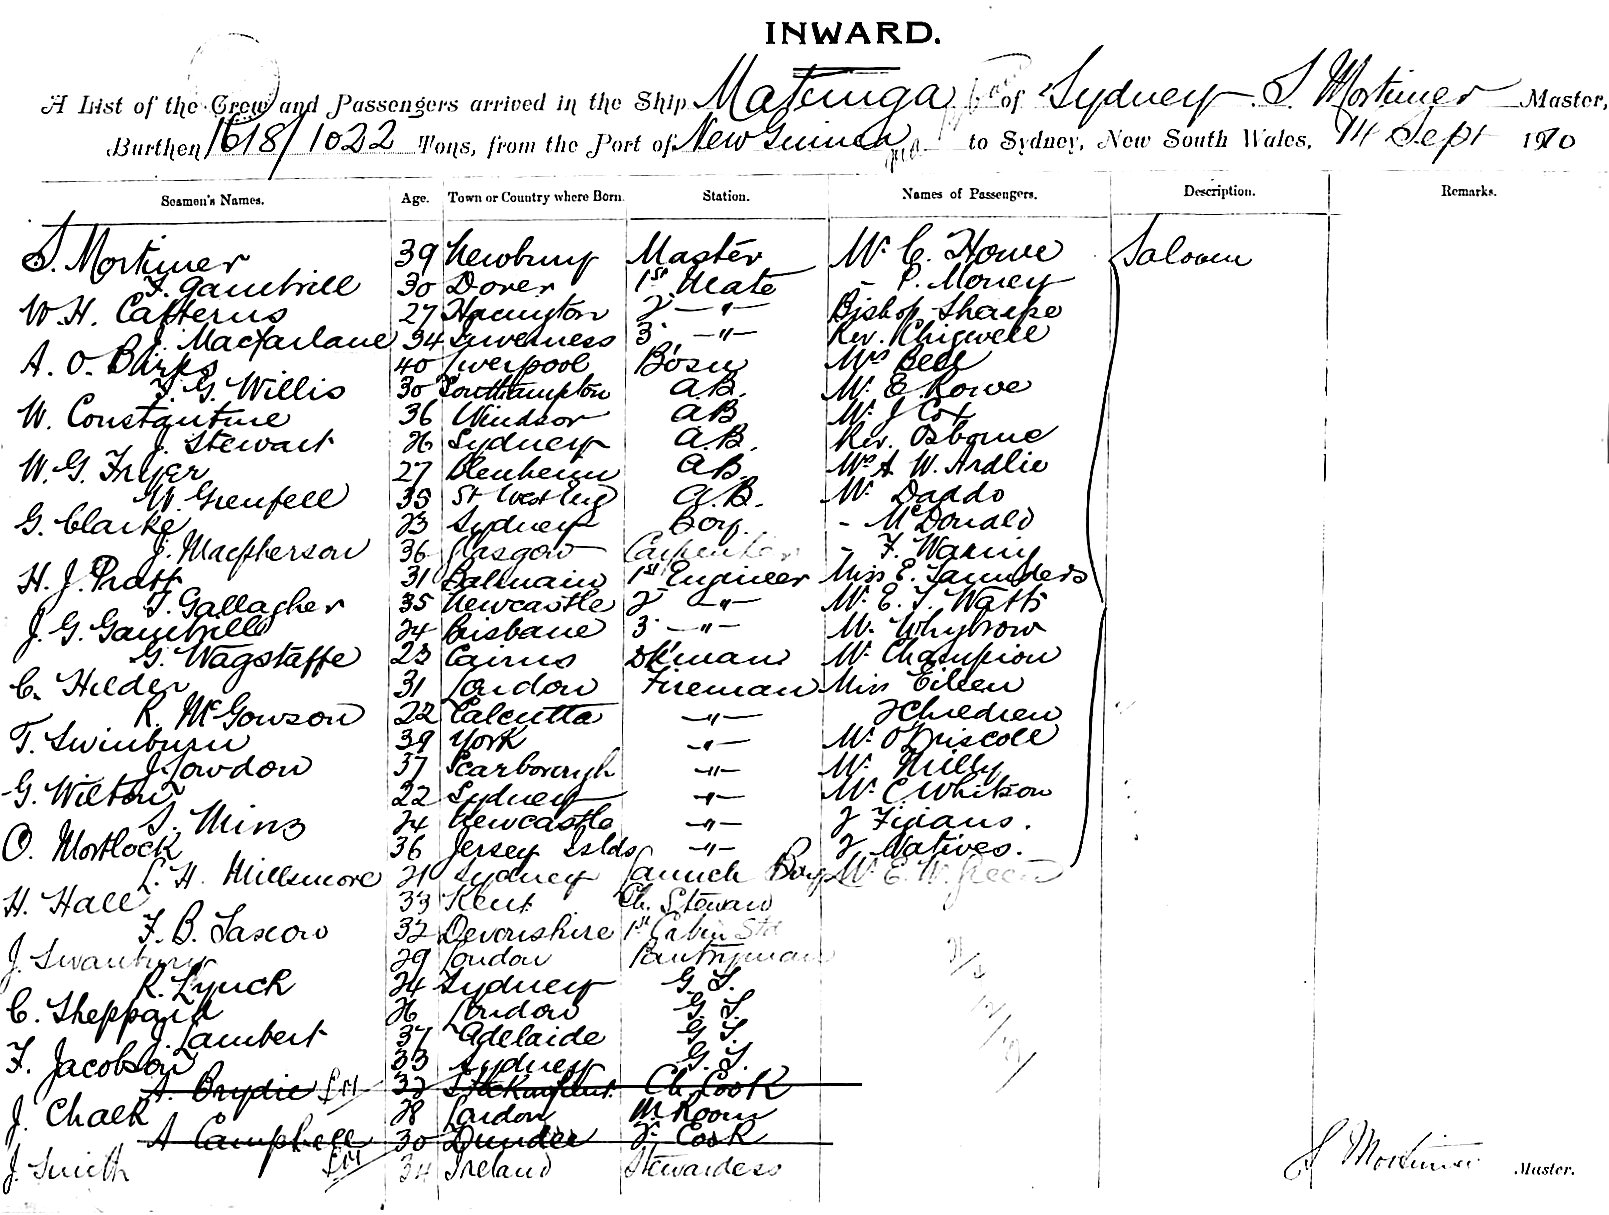 INWARD.
A List of the Crew and Passengers arrived in the Ship Matunga of Sydney S. Mortimer Master,
Burthen 1618/1022 Tons, from the Port of New Guinea to Sydney, New South Wales, 14 Sept 1910
Seamen's Names. Age. Town or Country where Born. Station. Names of Passengers. Description. Remarks.
S. Mortimer 39 Newbury Master Mr C. Howe Saloon
F. Gambrill 30 Dover 1st Mate - P. Money
W. H. Catterns 27 2 -"- Bishop Sharpe
J. MacFarlane 34 Inverness 3 -"- Rev. Chigwell
A. O. Birks 40 Liverpool Bosn Mrs Bell
F. G. Willis 30 Southampton A.B. Mr E. Rowe
W. Constantine 36 Windsor AB Mr J Cox
J. Stewart 26 Sydney A.B. Rev. Osborne
W. G. Fryer 27 Blenheim AB Mrs A W. Ardlie
W. Grenfell 35 St West Eng A.B. Mr Daddo
G. Clarke 23 Sydney Boy. - McDonald
J. Macpherson 36 Glasgow Carpenter - F. Waring
H. J. Pratt 31 Balmain 1st Engineer Miss E. Saunders
T. Gallagher 35 Newcastle 2 -"- Mr E. T. Watts
J. G. Gambrill 24 Brisbane 3 -"- Mr Whybrow
G. Wagstaffe 23 Cairns Dkman Mr Champion
C. Hilder 31 London Fireman Miss Eileen
R. McGowson 22 Calcutta -"- 2 Children
T. Swinburn 39 York -"- Mr O'Driscoll
J. Lowdon 37 Scarborough -"- Mr
G. Wilton 22 Sydney -"- Mr C. Whitson
S. Mins 24 Newcastle -"- 2 Fijians.
O. Mortlock 36 Jersey Islds -"- 2 Natives.
L. H. Millsmore 21 Sydney Launch Boy Mr E. W. Green
H. Hall 33 Kent Ch. Steward
F. B. Lascow 32 Devonshire 1st Cabin Std
J. Swanbury 29 London Pantryman
R. Lynch 24 Sydney G. S.
C. Sheppard 26 London G. S.
J. Lambert 37 Adelaide G. S.
F. Jacobson 33 Sydney G. S.
A. Brydie 32 Ch. Cook
J. Chalk 28 London M. Room
A Campbell 30 Dundee 2 Cook
J. Smith 34 Ireland Stewardess
S Mortimer Master.